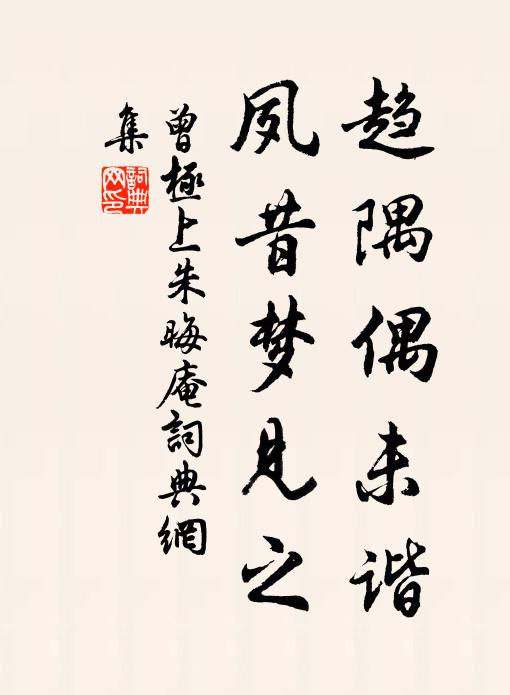 趋隅偶未谐
夙昔梦见之
曾極上朱晦庵詞典網
集
詞典
网印